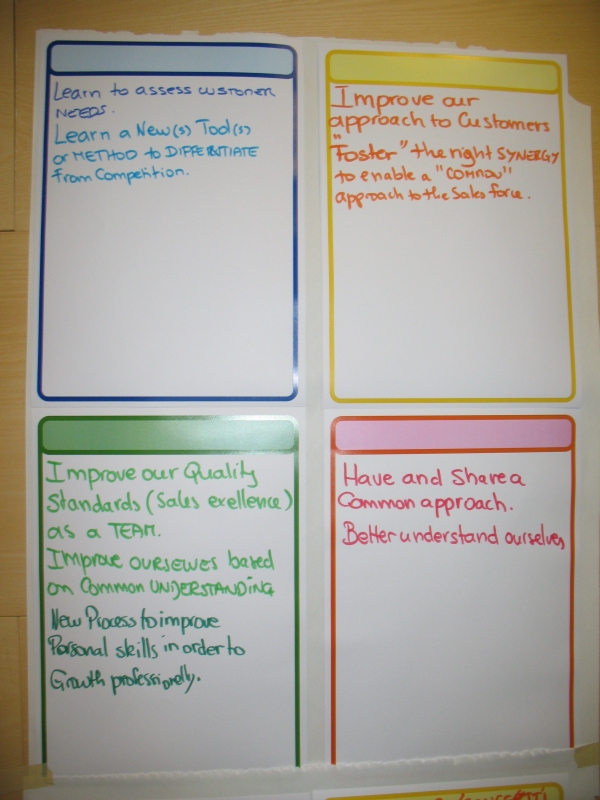 Learn to assess customer
NEEDS.
Learn a New(s) Tool(s)
or METHOD to DIFFERENTIATE
from Competition.
Improve our
approach to Customers
"Foster" the right SYNERGY
to enable a "COMMON"
approach to the Sales force.
Improve our Quality
Standards (Sales exellence)
as a TEAM.
IMPROVE OURSELVES based
on Common UNDERSTANDING
New Process to improve
Personal skills in order to
Growth professionally.
Have and Share a
Common approach.
Better understand ourselves